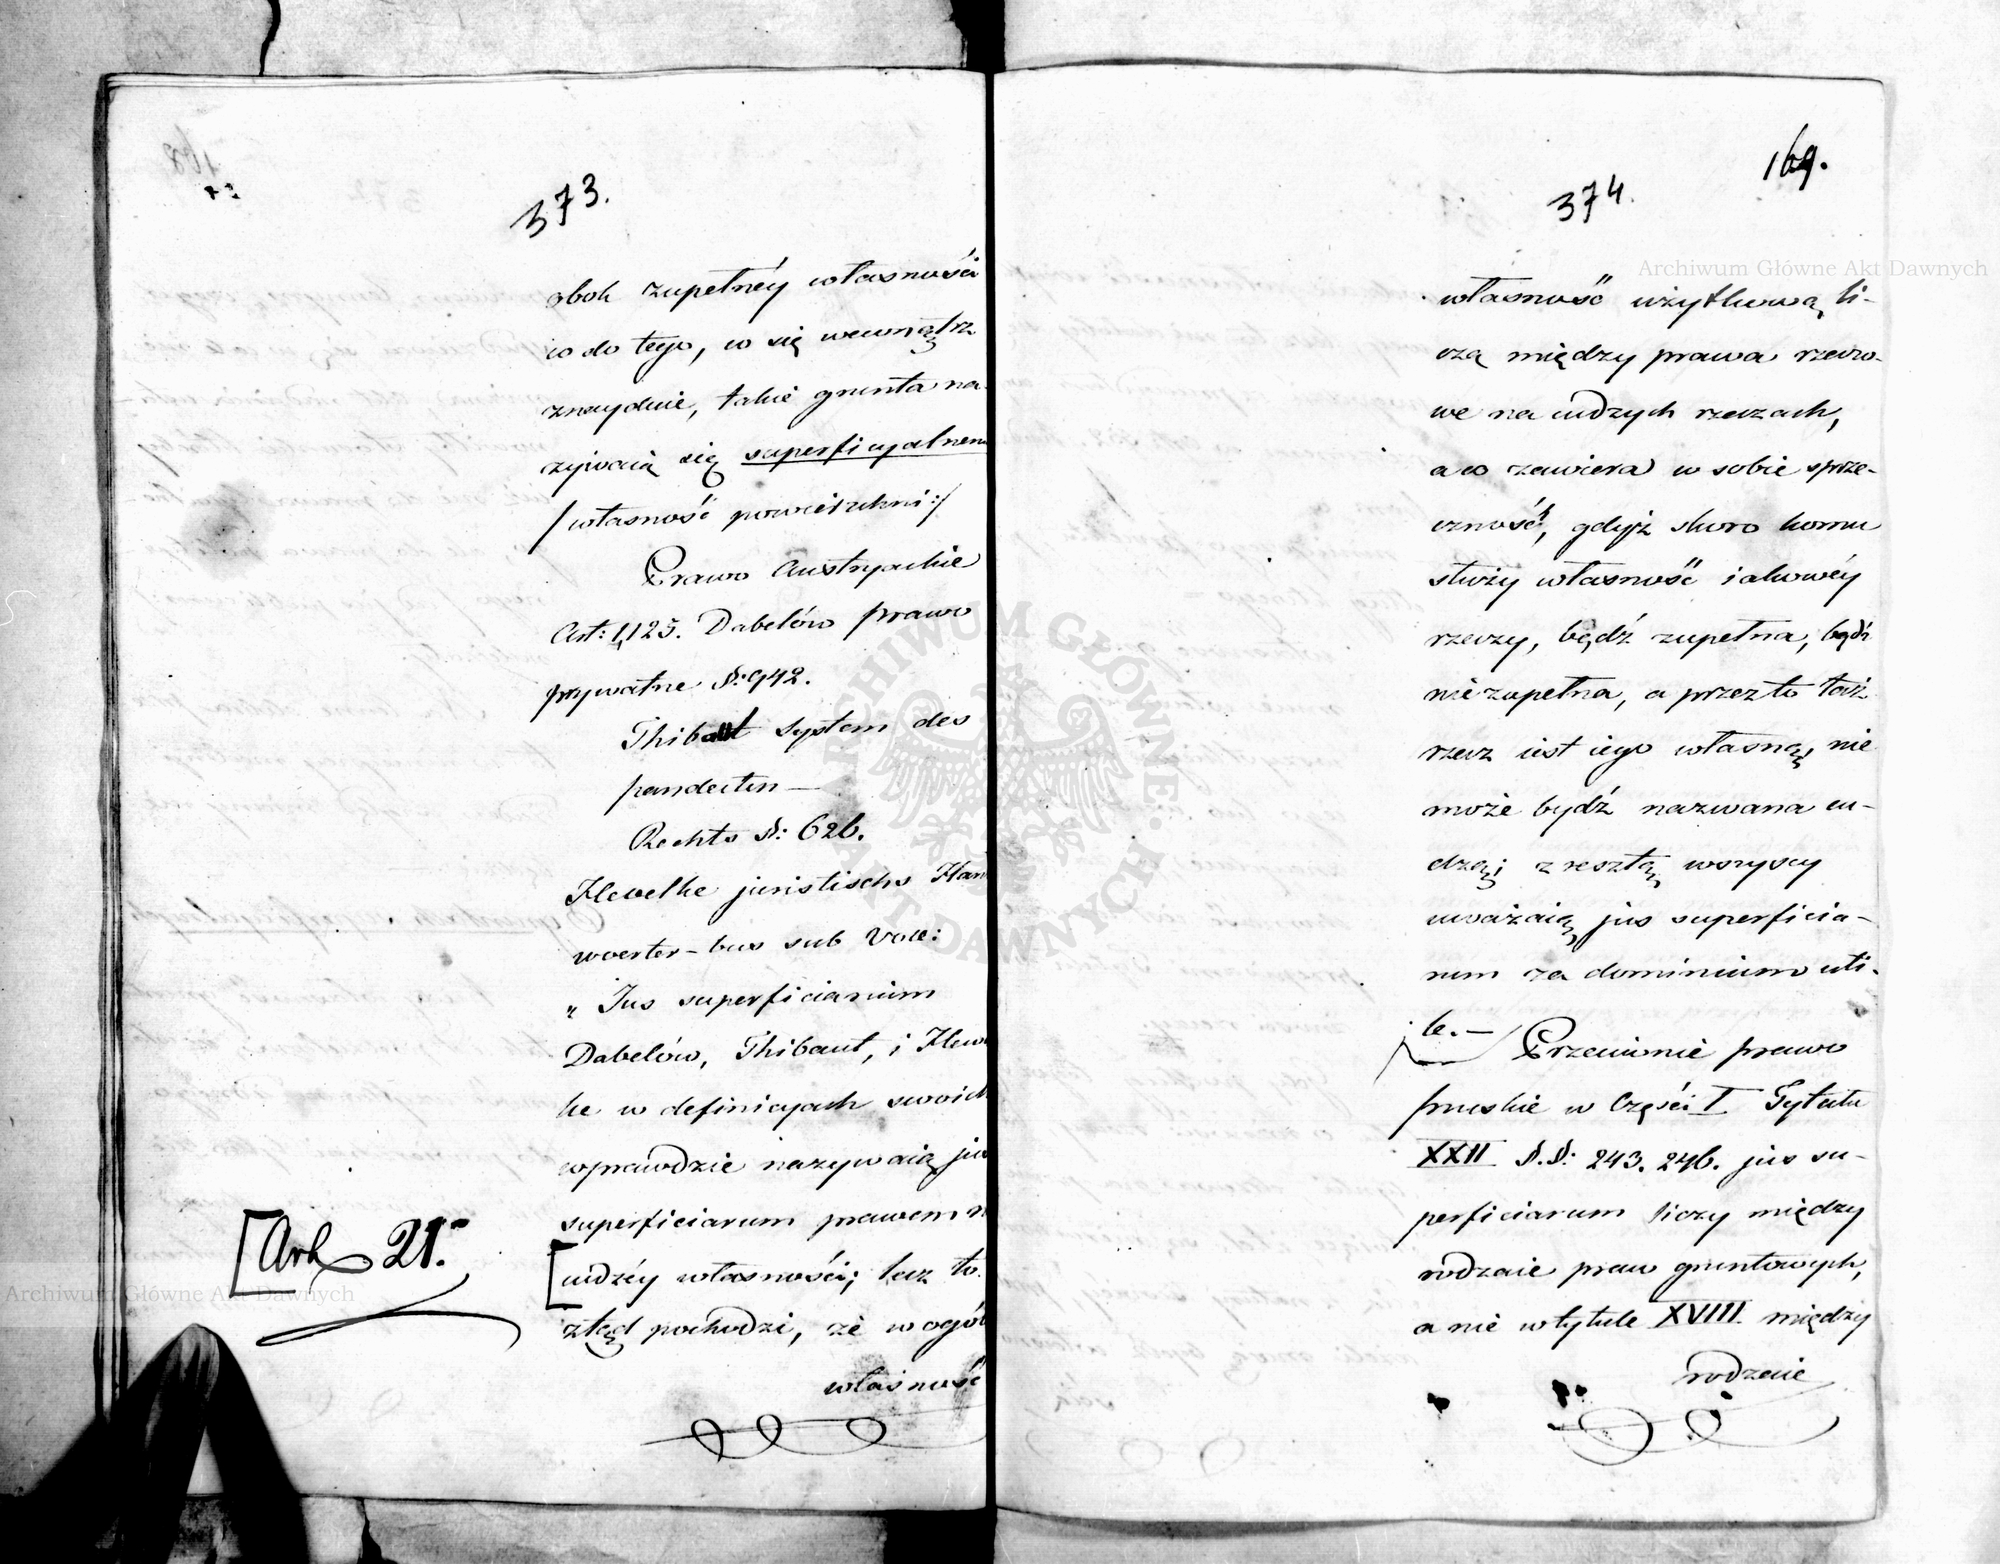 373.
obok zupełnéy własności
co do tego, co się wewnątrz
znayduie, takie grunta na-
zywaią się superficyalnemi
/własność powierzchni:/
Prawo Austryackie
Art: 1,125. Dabelów prawo
prywatne §: 942.
Thibaut System des
pandecten —
Rechts §: 626.
juristischs Han
woerter-bus sub voce:
„Jus superficiarium
Dabelów, Thibaut, i
ke w definicyach swoich
wprawdzie nazywaią jus
superficiarum prawem n
cudzéy własności; lecz to
ztąd pochodzi, że w ogól
własność
[Ark 21.
169.
374.
własność użytkową li-
czą między prawa rzeczo-
we na cudzych rzeczach,
a co zawiera w sobie sprze-
czność, gdyż skoro komu
służy własność iakowéy
rzeczy, bądź zupełna, bądź
niezupełna, a przez to taż
rzecz iest iego własną, nie
może bydź nazwana cu-
dzą; zresztą wszyscy
uważaią jus superficia-
rum za dominium uti-
le. — Przeciwnie prawo
pruskie w Części I Tytułu
XXII §.§: 243. 246. jus su-
perficiarum liczy między
rodzaie praw gruntowych,
a nie w tytule XVIII między
rodzaie
Archiwum Główne Akt Dawnych
Archiwum Główne Akt Dawnych
ARCHIWUM GŁÓWNE AKT DAWNYCH